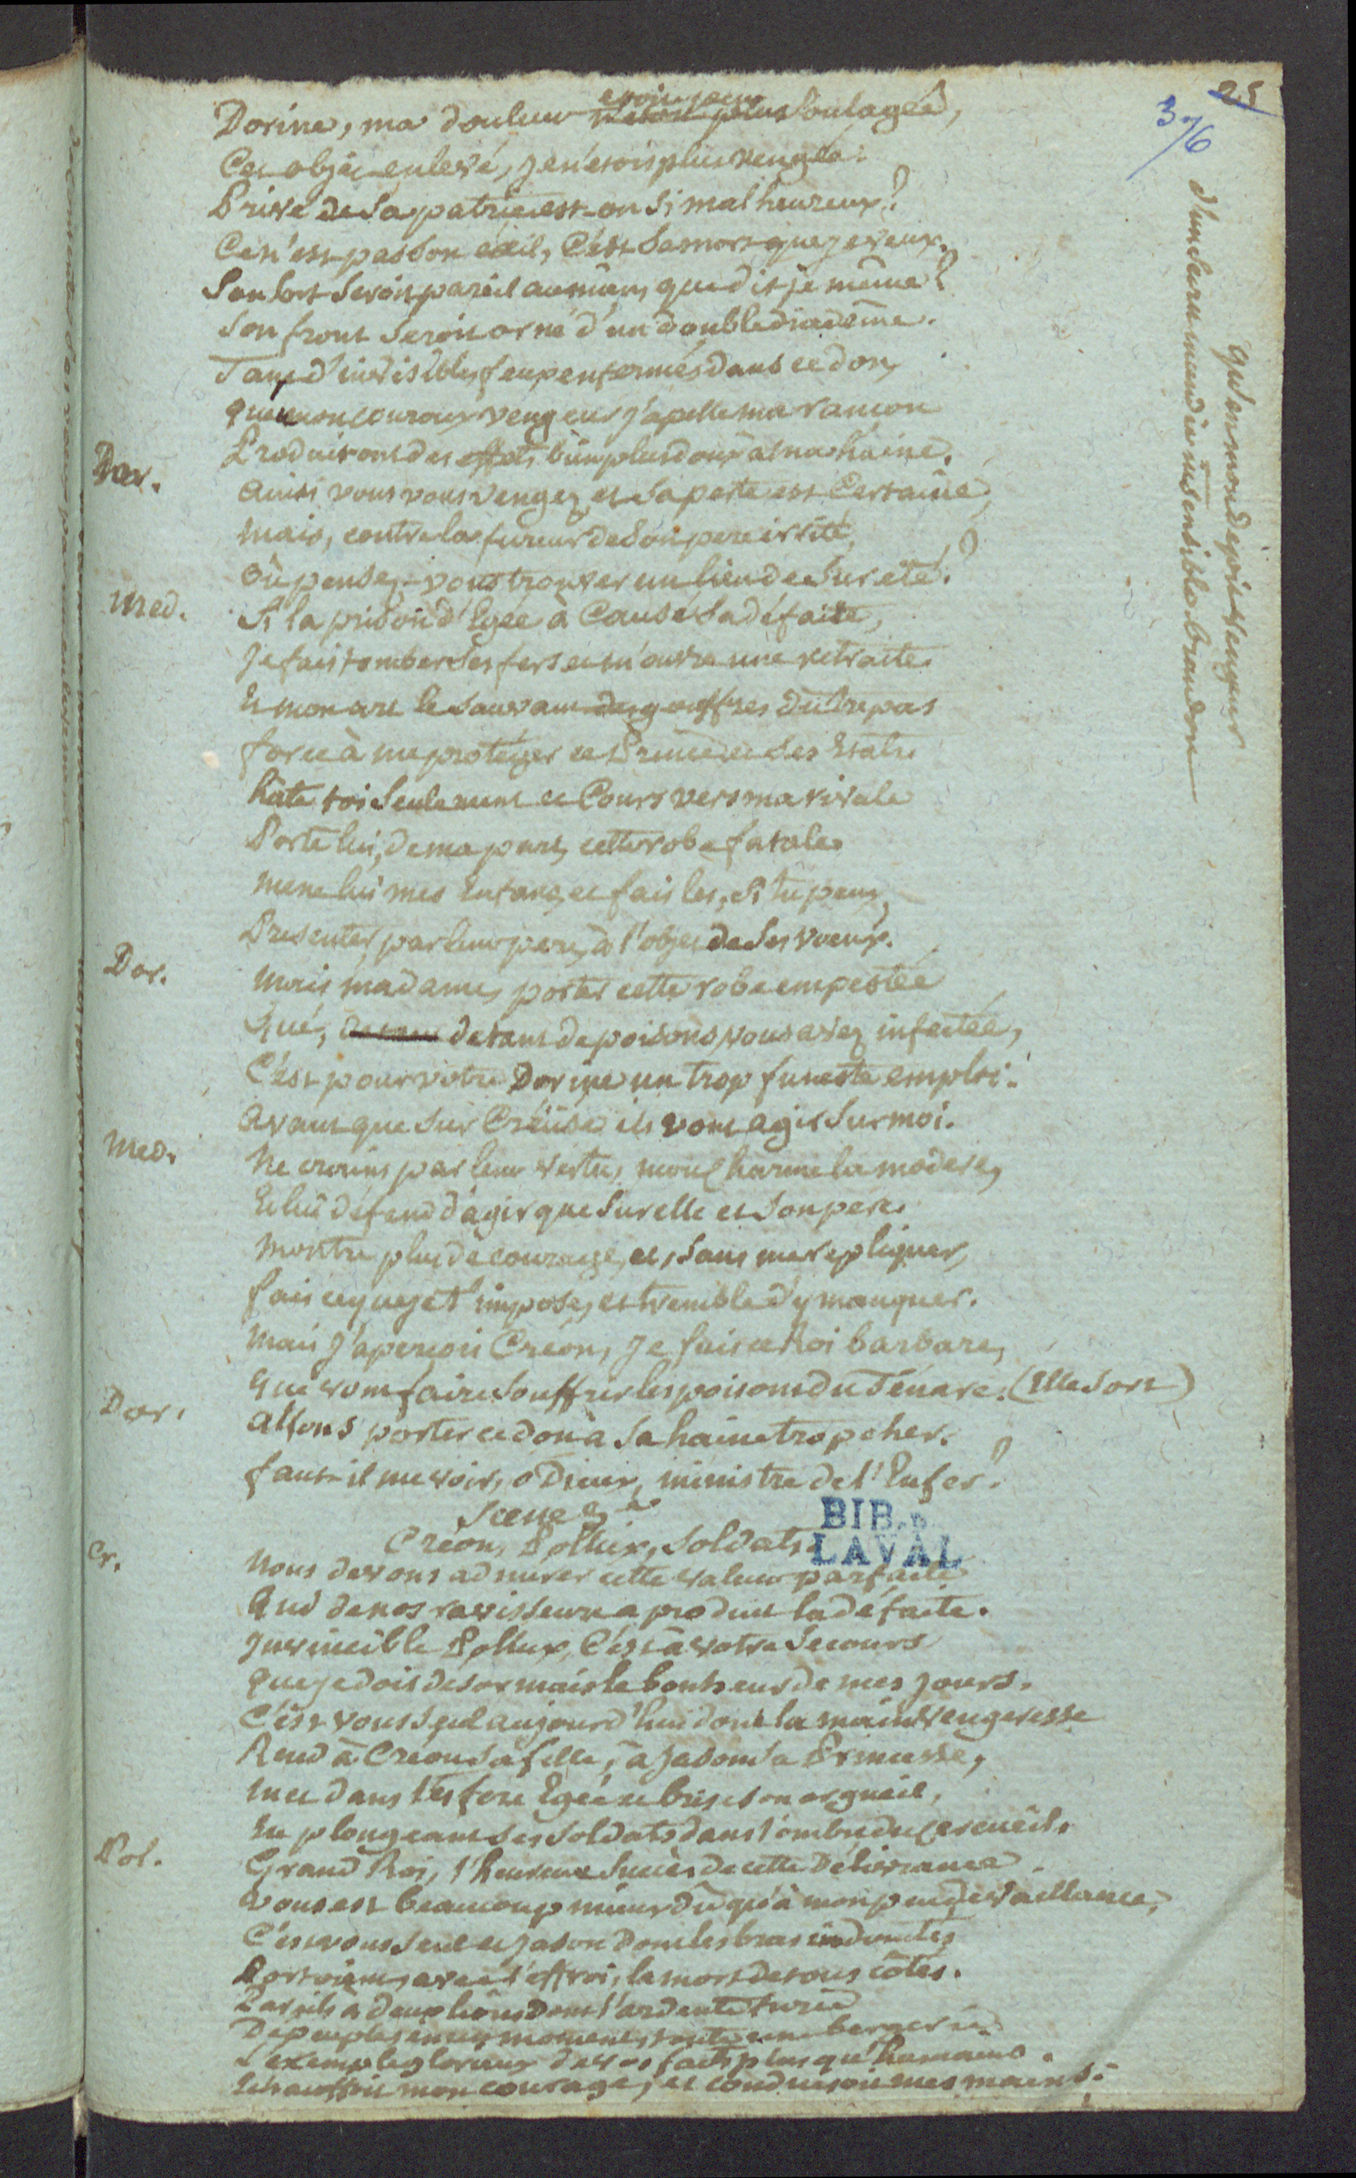 25
376
Dorine, ma douleur étoit peu soulagée,
Cet objet enlevé, je n'étois plus vengée.
Privé de sa patrie est-on si malheureux?
Ce n'est pas son exil, C'est sa mort que je veux.
Son sort seroit pareil au mien, que dis-je même?
Son front seroit orné d'un double diadême.
Tant d'invisibles feux enfermés dans ce don,
que mon couroux vengeur j'apelle ma rancon
Produiront des effets bien plus doux à ma haine.
Dor. Ainsi vous vous vengez, et sa perte est Certaine,
mais, contre la fureur de son pere irrité,
où pensez-vous trouver un lieu de sureté?
Med. Si la prison d'Egée a Causé sa défaite,
Je fais tomber ses fers et m'ouvre une retraite.
Et mon art le sauvant des gouffres du trepas
force à me protéger ce Prince et ses Etats.
hâte toi seulement et Cours vers ma rivale
Porte lui, de ma part, cette robe fatale.
mene lui mes Enfans, et fais les, si tu peux,
Presenter, par leur pere, à l'objet de ses voeux.
Dor. Mais madame, porter cette robe empestée
Que, de tant de poisons vous avez infectée,
C'est pour votre Dorine un trop funeste emploi.
Avant que sur Créüse ils vont agir sur moi.
Med. Ne crains pas leur vertu, mon Charme la modere,
Et lui défend d'agir que sur elle et son pere.
Montre plus de courage, et, sans me repliquer,
fais ce que je t'impose, et tremble d'y manquer.
Mais j'apercois Créon, Je fuis ce Roi barbare,
Que vont faire souffrir les poisons du Ténare. (Elle sort)
Dor. allons porter ce don à sa haine trop cher.
faut-il me voir, o Dieux, ministre de l'Enfer?
Scene
Créon, Pollux, Soldats.
BIB.
LAVAL
Cr. Nous devons admirer cette valeur parfaite
Qui de nos ravisseurs a produit la défaite.
Invincible Pollux, C'est à votre secours
que je dois desormais le bonheur de mes jours.
C'est vous seul aujourd'hui dont la main vengeresse
Rend à Créon sa fille, à Jason sa Princesse,
met dans les fers Egée et brise son orgueil,
En plongeant ses soldats dans l'ombre du cercueil.
Pol. Grand Roi, l'heureux succès de cette Délivrance
Vous est beaucoup mieux dû qu'à mon peu de vaillance,
C'est vous seul et Jason dont les bras indomtés
Portoient, avec l'effroi, la mort de tous côtés.
Pareils à deux lions dont l'ardente furie
Depeuple en un moment toute une bergerie.
L'exemple glorieux de vos faits plus qu'humains
Echauffoit mon courage, et conduisoit mes mains.
qu'en mon depit vengeur